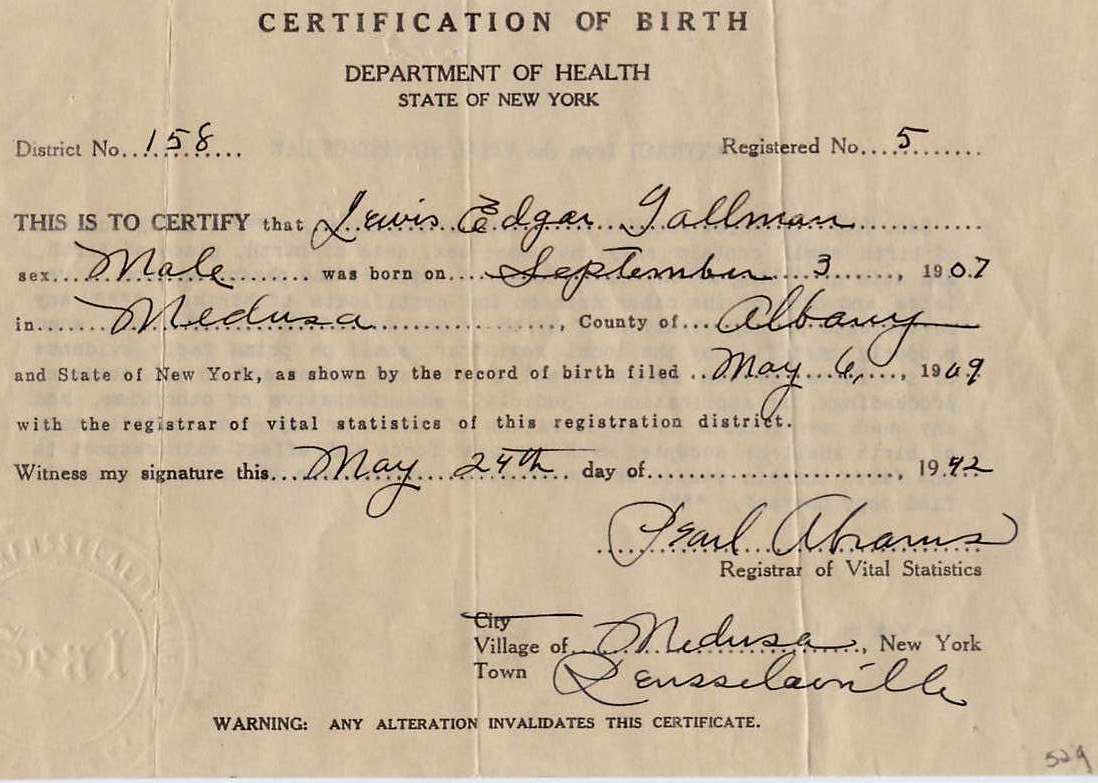 CERTIFICATION OF BIRTH
DEPARTMENT OF HEALTH
STATE OF NEW YORK
District No. 158 Registered No. 5
THIS IS TO CERTIFY that Lewis Edgar Tallman
sex Male was born on September 3, 1907
in Medusa, County of Albany
and State of New York, as shown by the record of birth filed May 6, 1909
with the registrar of vital statistics of this registration district.
Witness my signature this May 24th day of 1942
Pearl Abrams
Registrar of Vital Statistics
City
Village of Medusa, New York
Town Rensselaerville
WARNING: ANY ALTERATION INVALIDATES THIS CERTIFICATE.
529